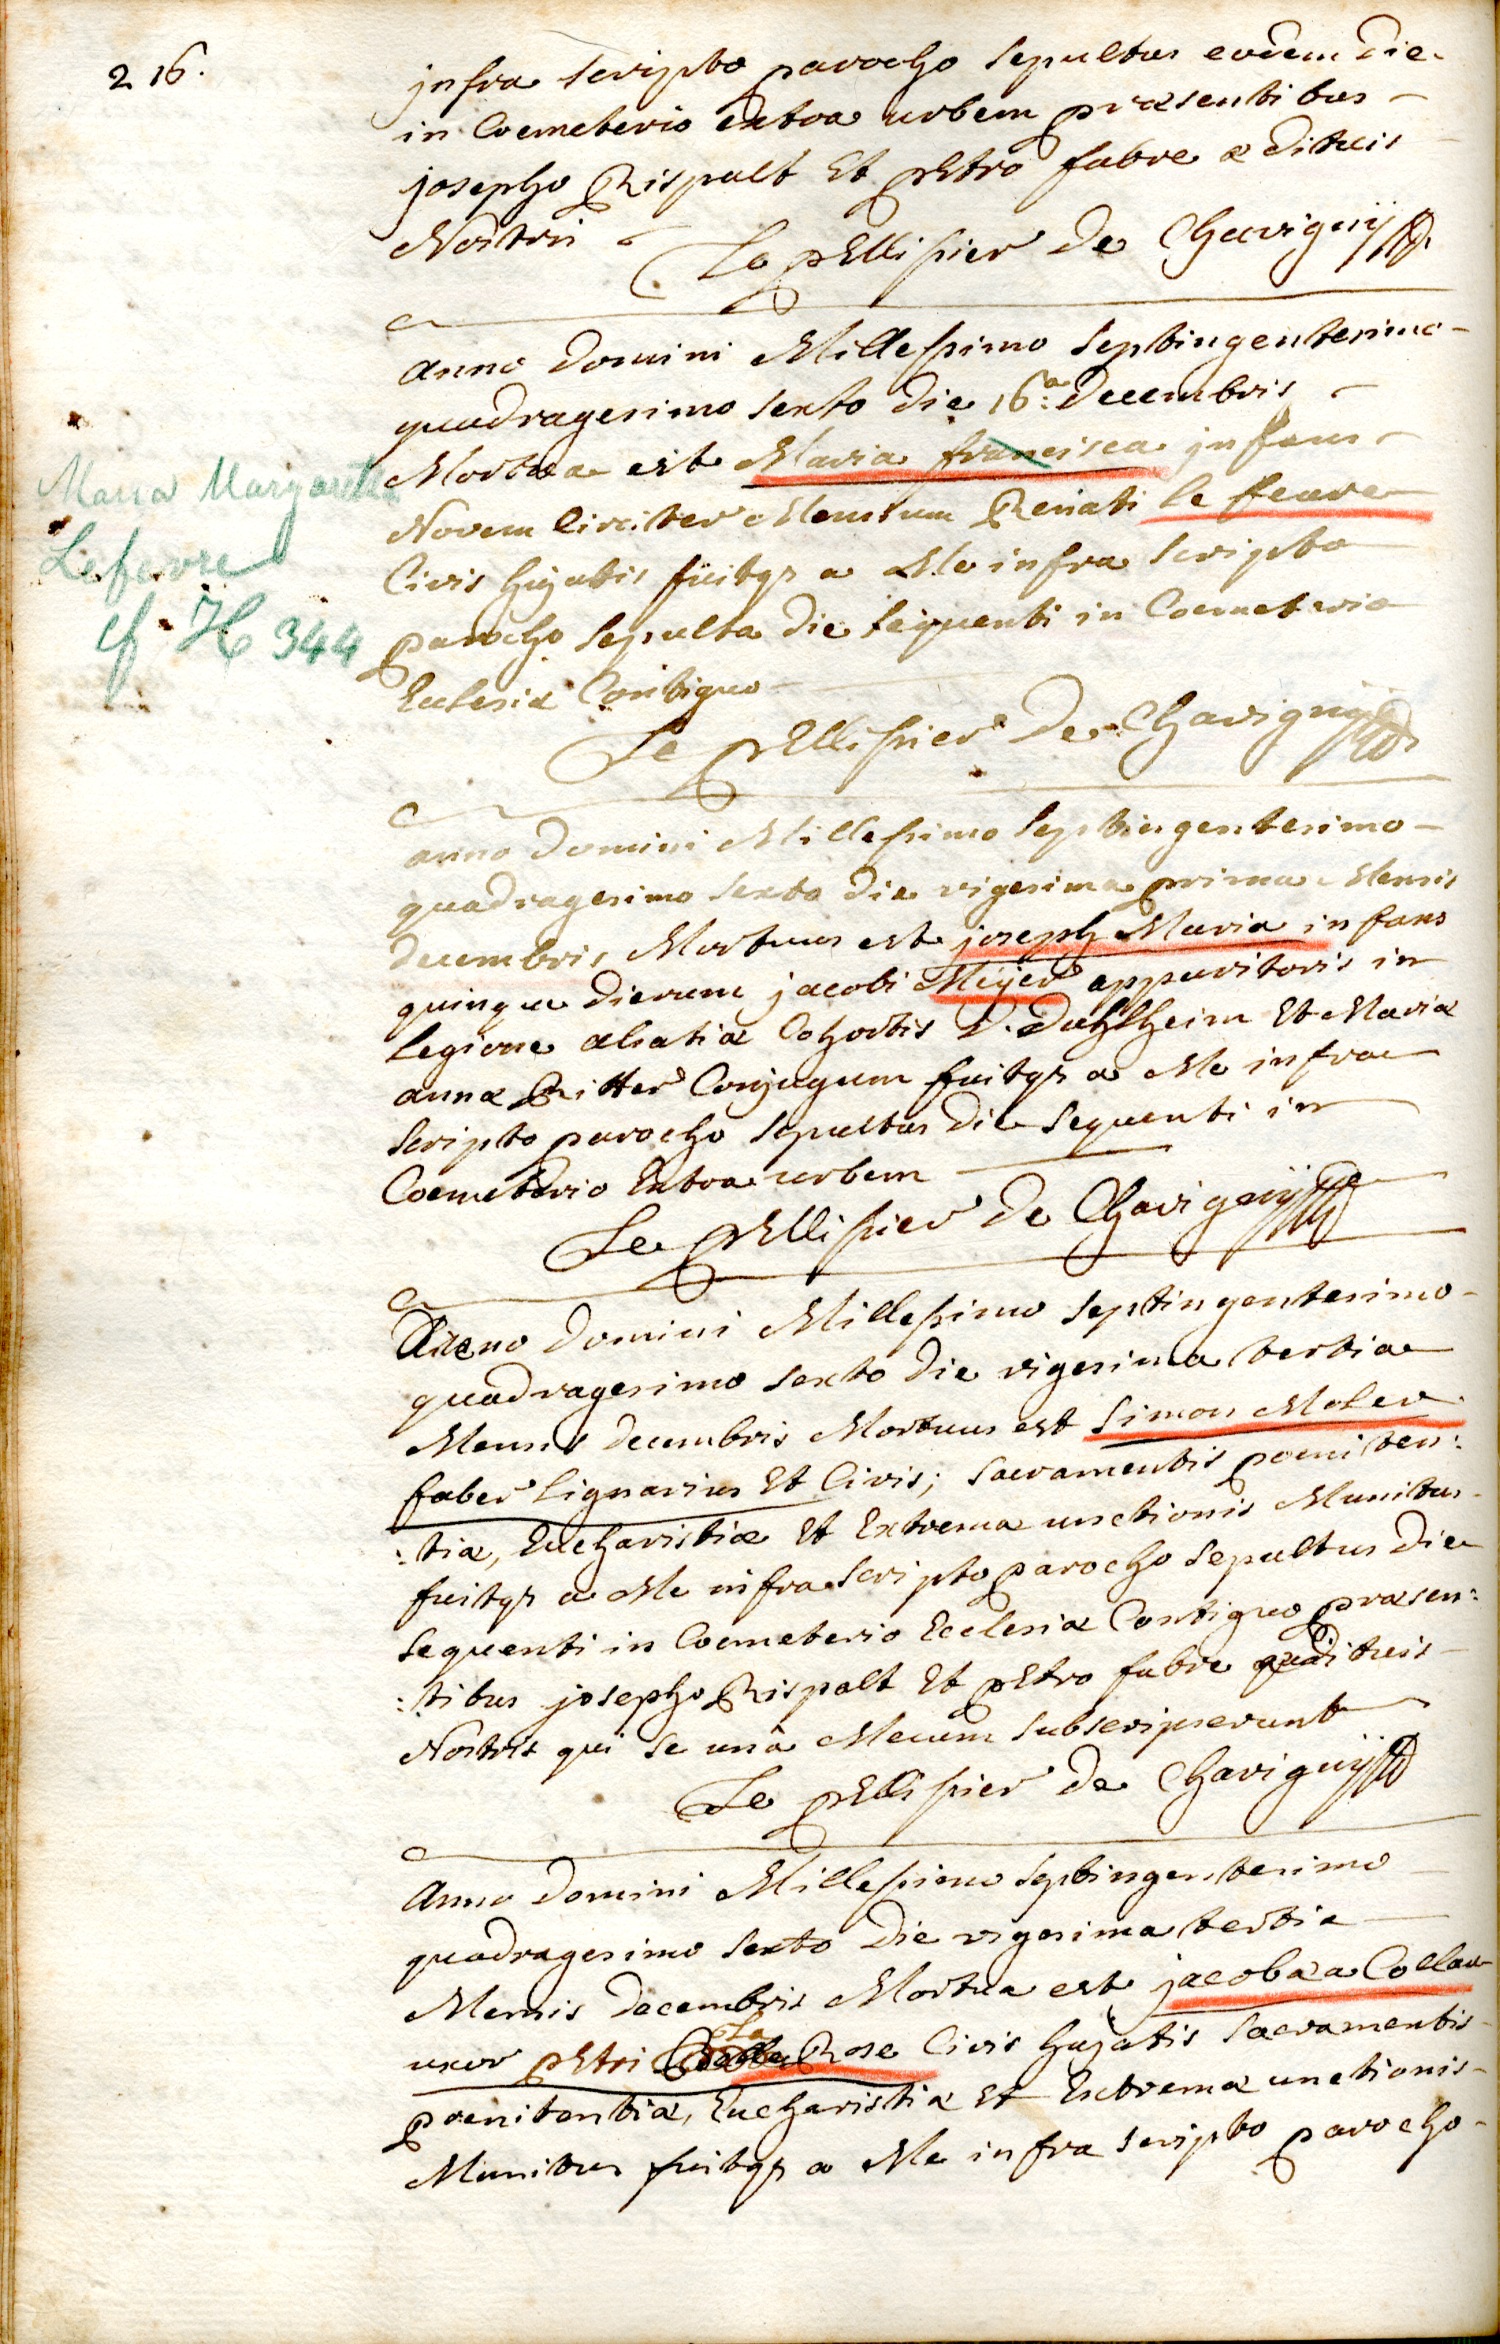 216.
infra scripto parocho sepultus eodem die
in Coemeterio extra urbem præsentibus
josepho Rispalt Et pEtro fabre ædituis
Nostris
Le pEllissier De Chavignÿ
anno Domini Millessimo Septingentesimo
quadragesimo sexto die 16a: Decembris
Mortua est Maria francisca infans
Novem Circiter Mensium Renati le feure
Civis hujatis fuitqs a Me infra scripto
parocho sepulta die sequenti in Coemeterio
Ecclesiæ Contiguo
Le pEllissier De Chavignÿ
Maria Margaretha
Lefevre
cf. H 344
anno Domini Millessimo Septingentesimo
quadragesimo sexto die vigesima prima Mensis
decembris Mortuus est joseph Maria infans
quinque dierum jacobi Meÿer apparitoris in
Legione alsatiæ Cohortis D. Dahlheim Et Mariæ
annæ Ritter Conjugum fuitqs a Me infra
scripto parocho sepultus die sequenti in
Coemeterio Extra urbem
Le pEllissier De Chavignÿ
Anno Domini Millessimo septingentesimo
quadragesimo sexto die vigesima tertia
Mensis decembris Mortuus est Simon Moler
faber lignarius Et Civis; sacramentis poeniten:
:tiæ, Eucharistiæ Et Extremæ unctionis Munitus
fuitqs a Me infra scripto parocho sepultus die
sequenti in Coemeterio Ecclesiæ Contiguo præsen:
:tibus josepho Rispalt Et pEtro fabre ædituis
Nostris qui se unâ Mecum subscripserunt
Le pEllissier De Chavignÿ
Anno Domini Millessimo Septingentesimo
quadragesimo sexto die vigesima tertia
Mensis decembris Mortua est jacobæa Collar
uxor pEtri La Rose Civis hujatis sacramentis
poenitentiæ, Eucharistiæ Et Extremæ unctionis
Munitus fuitqs a Me infra scripto parocho